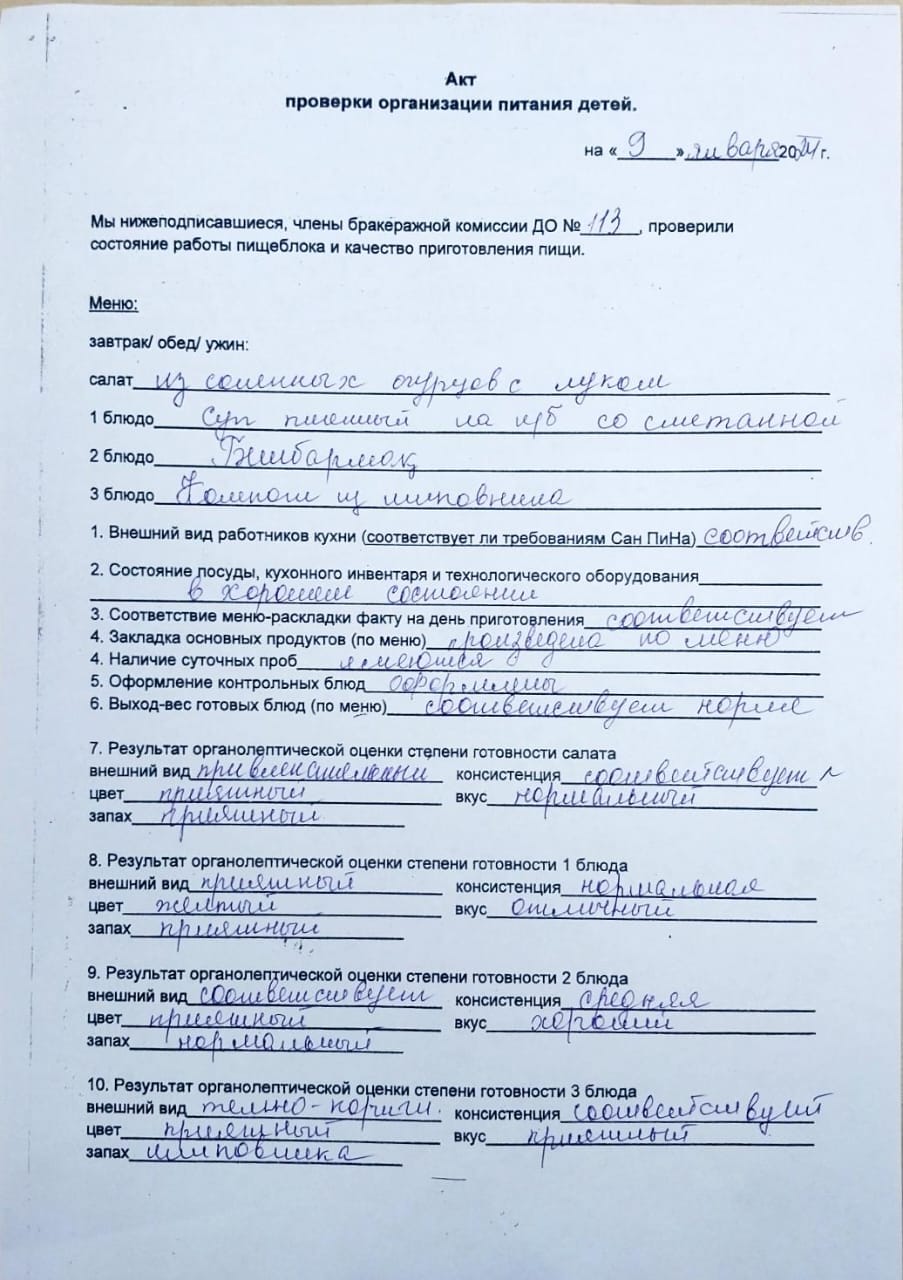 Акт
проверки организации питания детей.
на « 9 » января 2024 г.
Мы нижеподписавшиеся, члены бракеражной комиссии ДО № 113, проверили
состояние работы пищеблока и качество приготовления пищи.
Меню:
завтрак/ обед/ ужин:
салат из соленных огурцов с луком
1 блюдо Суп пшенный на м/б со сметанной
2 блюдо Бешбармак
3 блюдо Компот из шиповника
1. Внешний вид работников кухни (соответствует ли требованиям Сан ПиНа) соответств.
2. Состояние посуды, кухонного инвентаря и технологического оборудования
в хорошем состоянии
3. Соответствие меню-раскладки факту на день приготовления соответствует
4. Закладка основных продуктов (по меню) произведена по меню
4. Наличие суточных проб имеются
5. Оформление контрольных блюд оформлены
6. Выход-вес готовых блюд (по меню) соответствует норме
7. Результат органолептической оценки степени готовности салата
внешний вид привлекательный консистенция соответствует
цвет приятный вкус нормальный
запах приятный
8. Результат органолептической оценки степени готовности 1 блюда
внешний вид приятный консистенция нормальная
цвет желтый вкус отличный
запах приятный
9. Результат органолептической оценки степени готовности 2 блюда
внешний вид соответствует консистенция средняя
цвет приятный вкус хороший
запах нормальный
10. Результат органолептической оценки степени готовности 3 блюда
внешний вид темно-коричн. консистенция соответствует
цвет приятный вкус приятный
запах шиповника